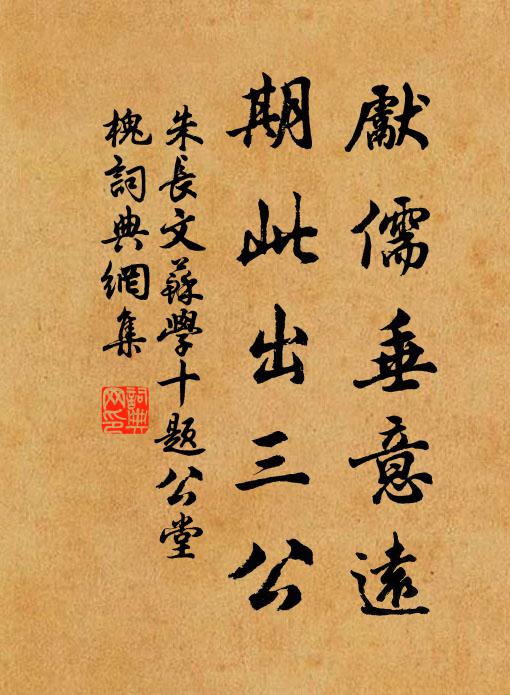 獻儒垂意遠
期此出三公
朱長文蘇學十題公堂
槐詞典網集
詞典網印